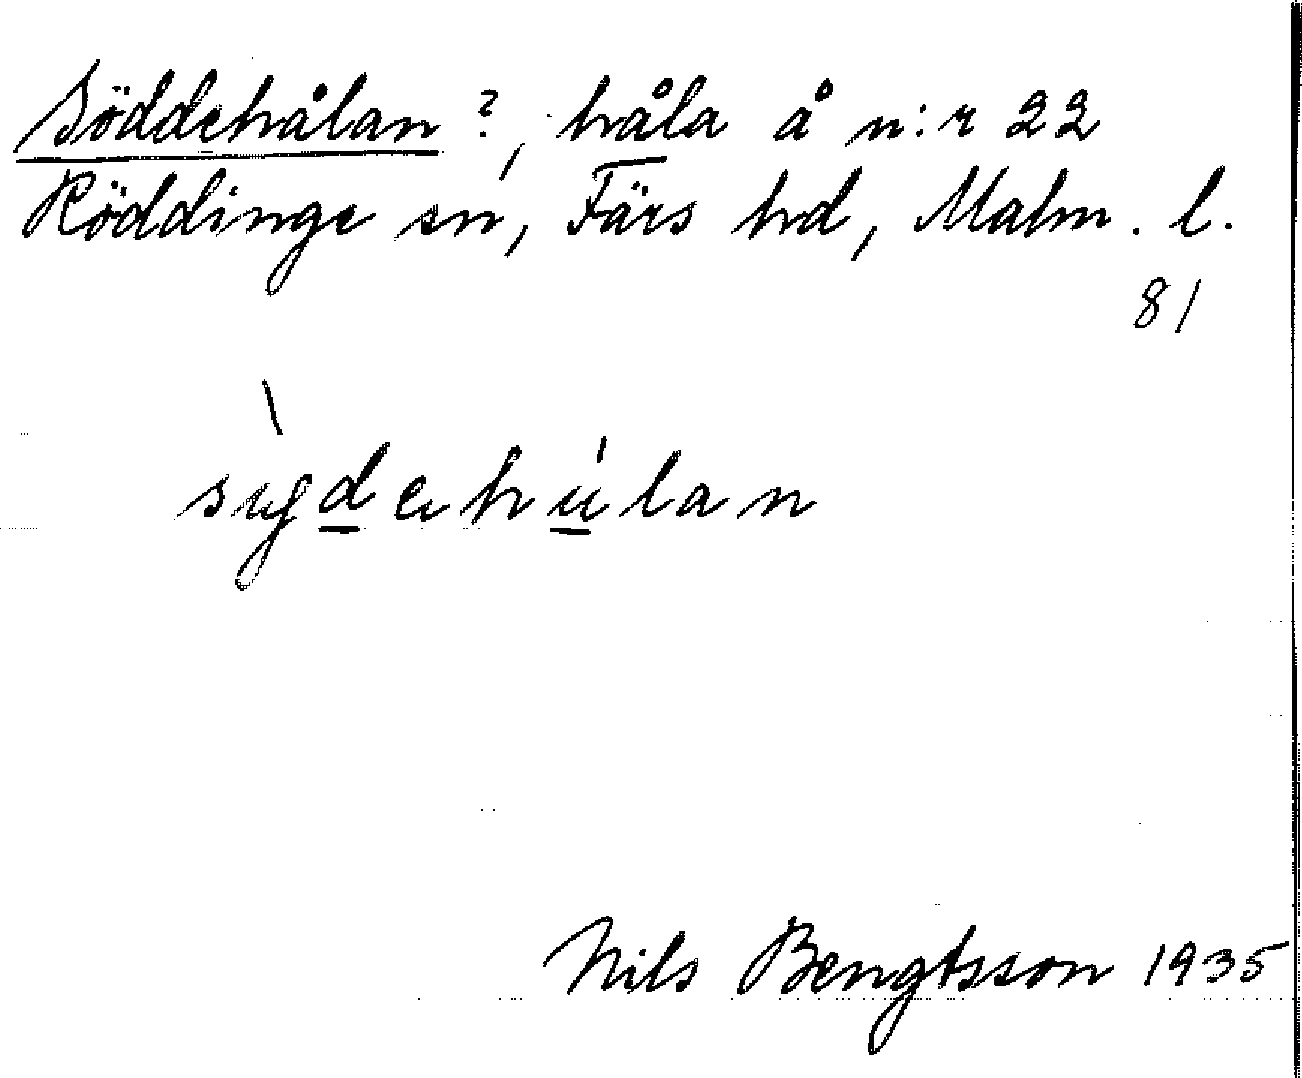 Söddehålan ?, håla å n:r 22
Röddinge sn, Färs hd, Malm. l.
81
Nils Bengtsson 1935